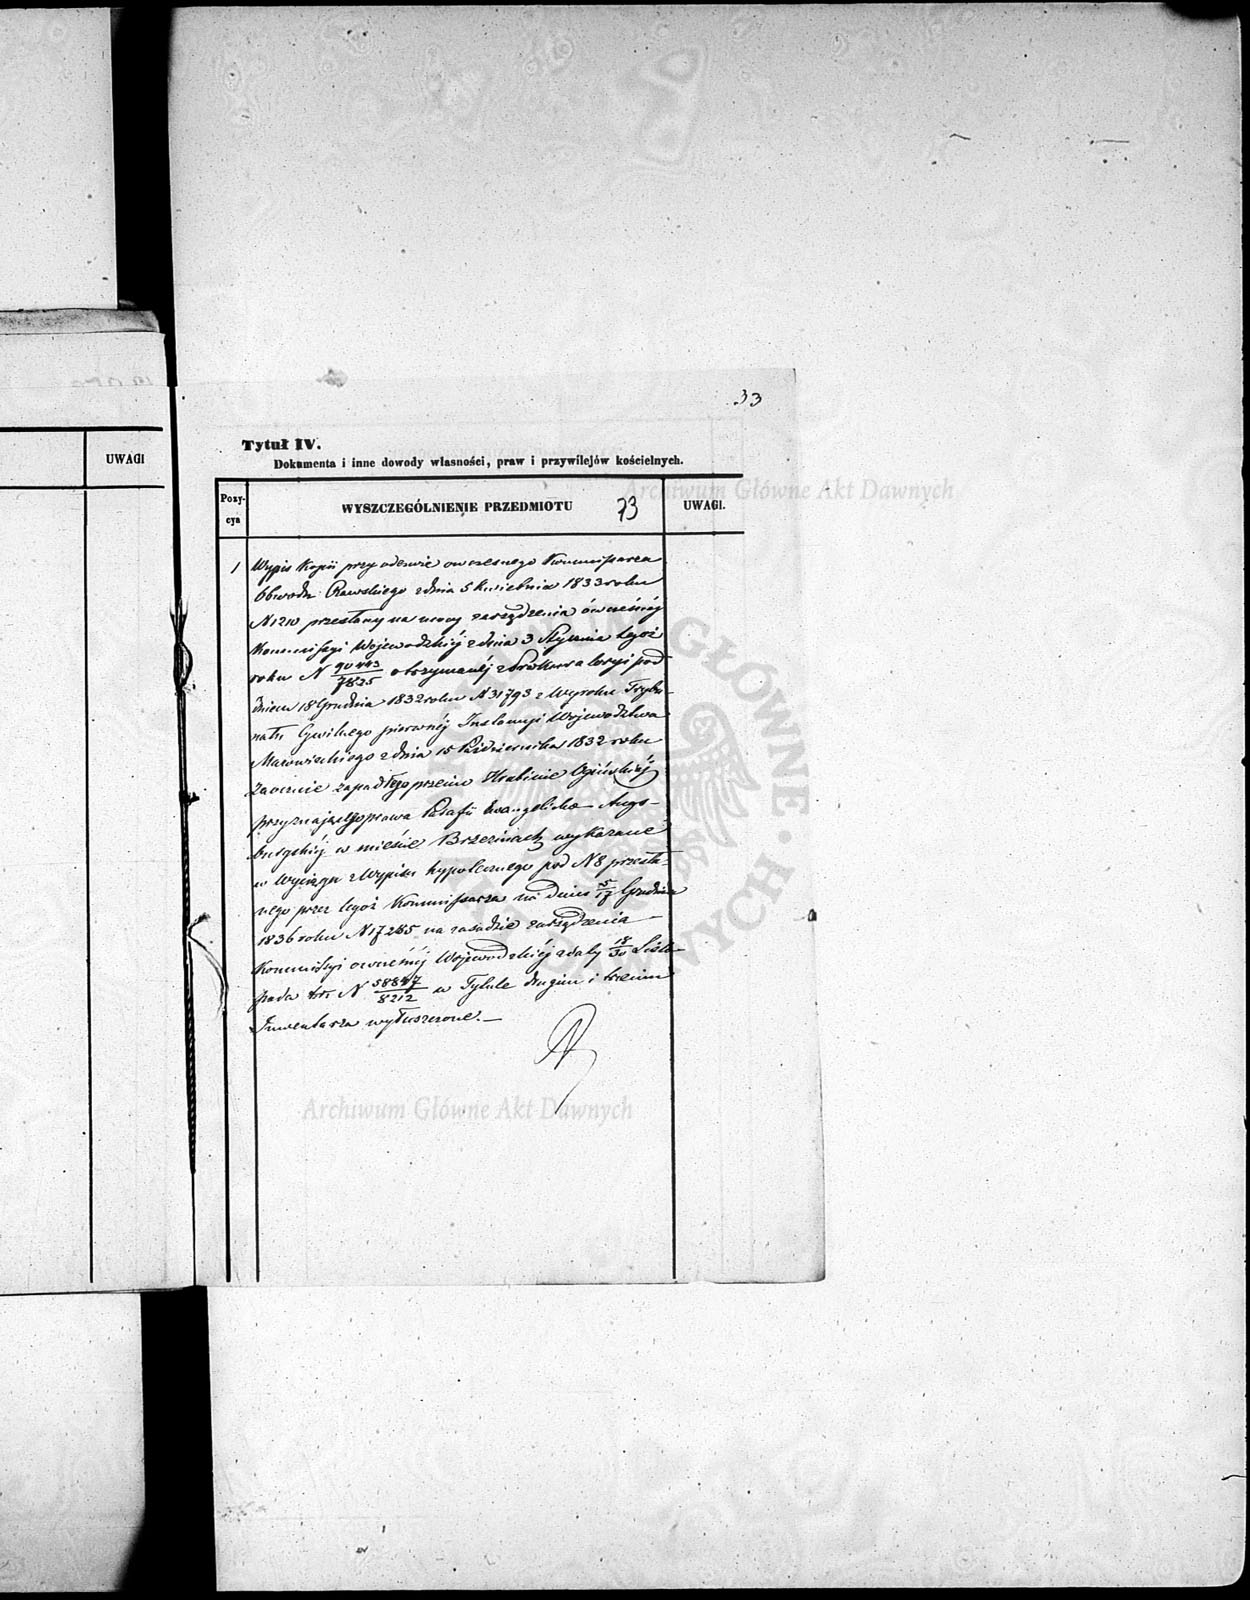 33
UWAGI
Tytuł IV.
Dokumenta i inne dowody własności, praw i przywilejów kościelnych.
Pozy-
cya
WYSZCZEGÓLNIENIE PRZEDMIOTU
33
UWAGI.
1 Wypis Kopii przy odezwie owczesnego Kommissarza
Obwodu Rawskiego z dnia 5 Kwietnia 1833 roku
N 1210 przesłany na mocy zarządzenia ówcześnéj
Kommissyi Wojewodzkiéj z dnia 3 Stycznia tegoż
roku N 90443/7825 otrzymanéj z Prokuratoryi pod
dniem 18 Grudnia 1832 roku N 31793 z Wyroku Trybu-
nału Cywilnego pierwszéj Instancyi Województwa
Mazowieckiego z dnia 15 Października 1832 roku
zaocznie zapadłego przeciw Hrabinie Ogińskiéj
przyznającego prawa Parafii Ewangelicko Augs-
burgskiéj w mieście Brzezinach wykazane
w Wyciągu z Wypisu hypotecznego pod N 8 przesła-
nego przez tegoż Kommissarza na dniu 5/17 Grudnia
1836 roku N 17285 na zasadzie zarządzenia
Kommissyi owcześnéj Wojewodzkiéj z daty 18/30 Listo-
pada t.r. N 58847/8212 w Tytule drugim i trzecim
Inwentarza wyłuszczone. —
Archiwum Główne Akt Dawnych
Archiwum Główne Akt Dawnych